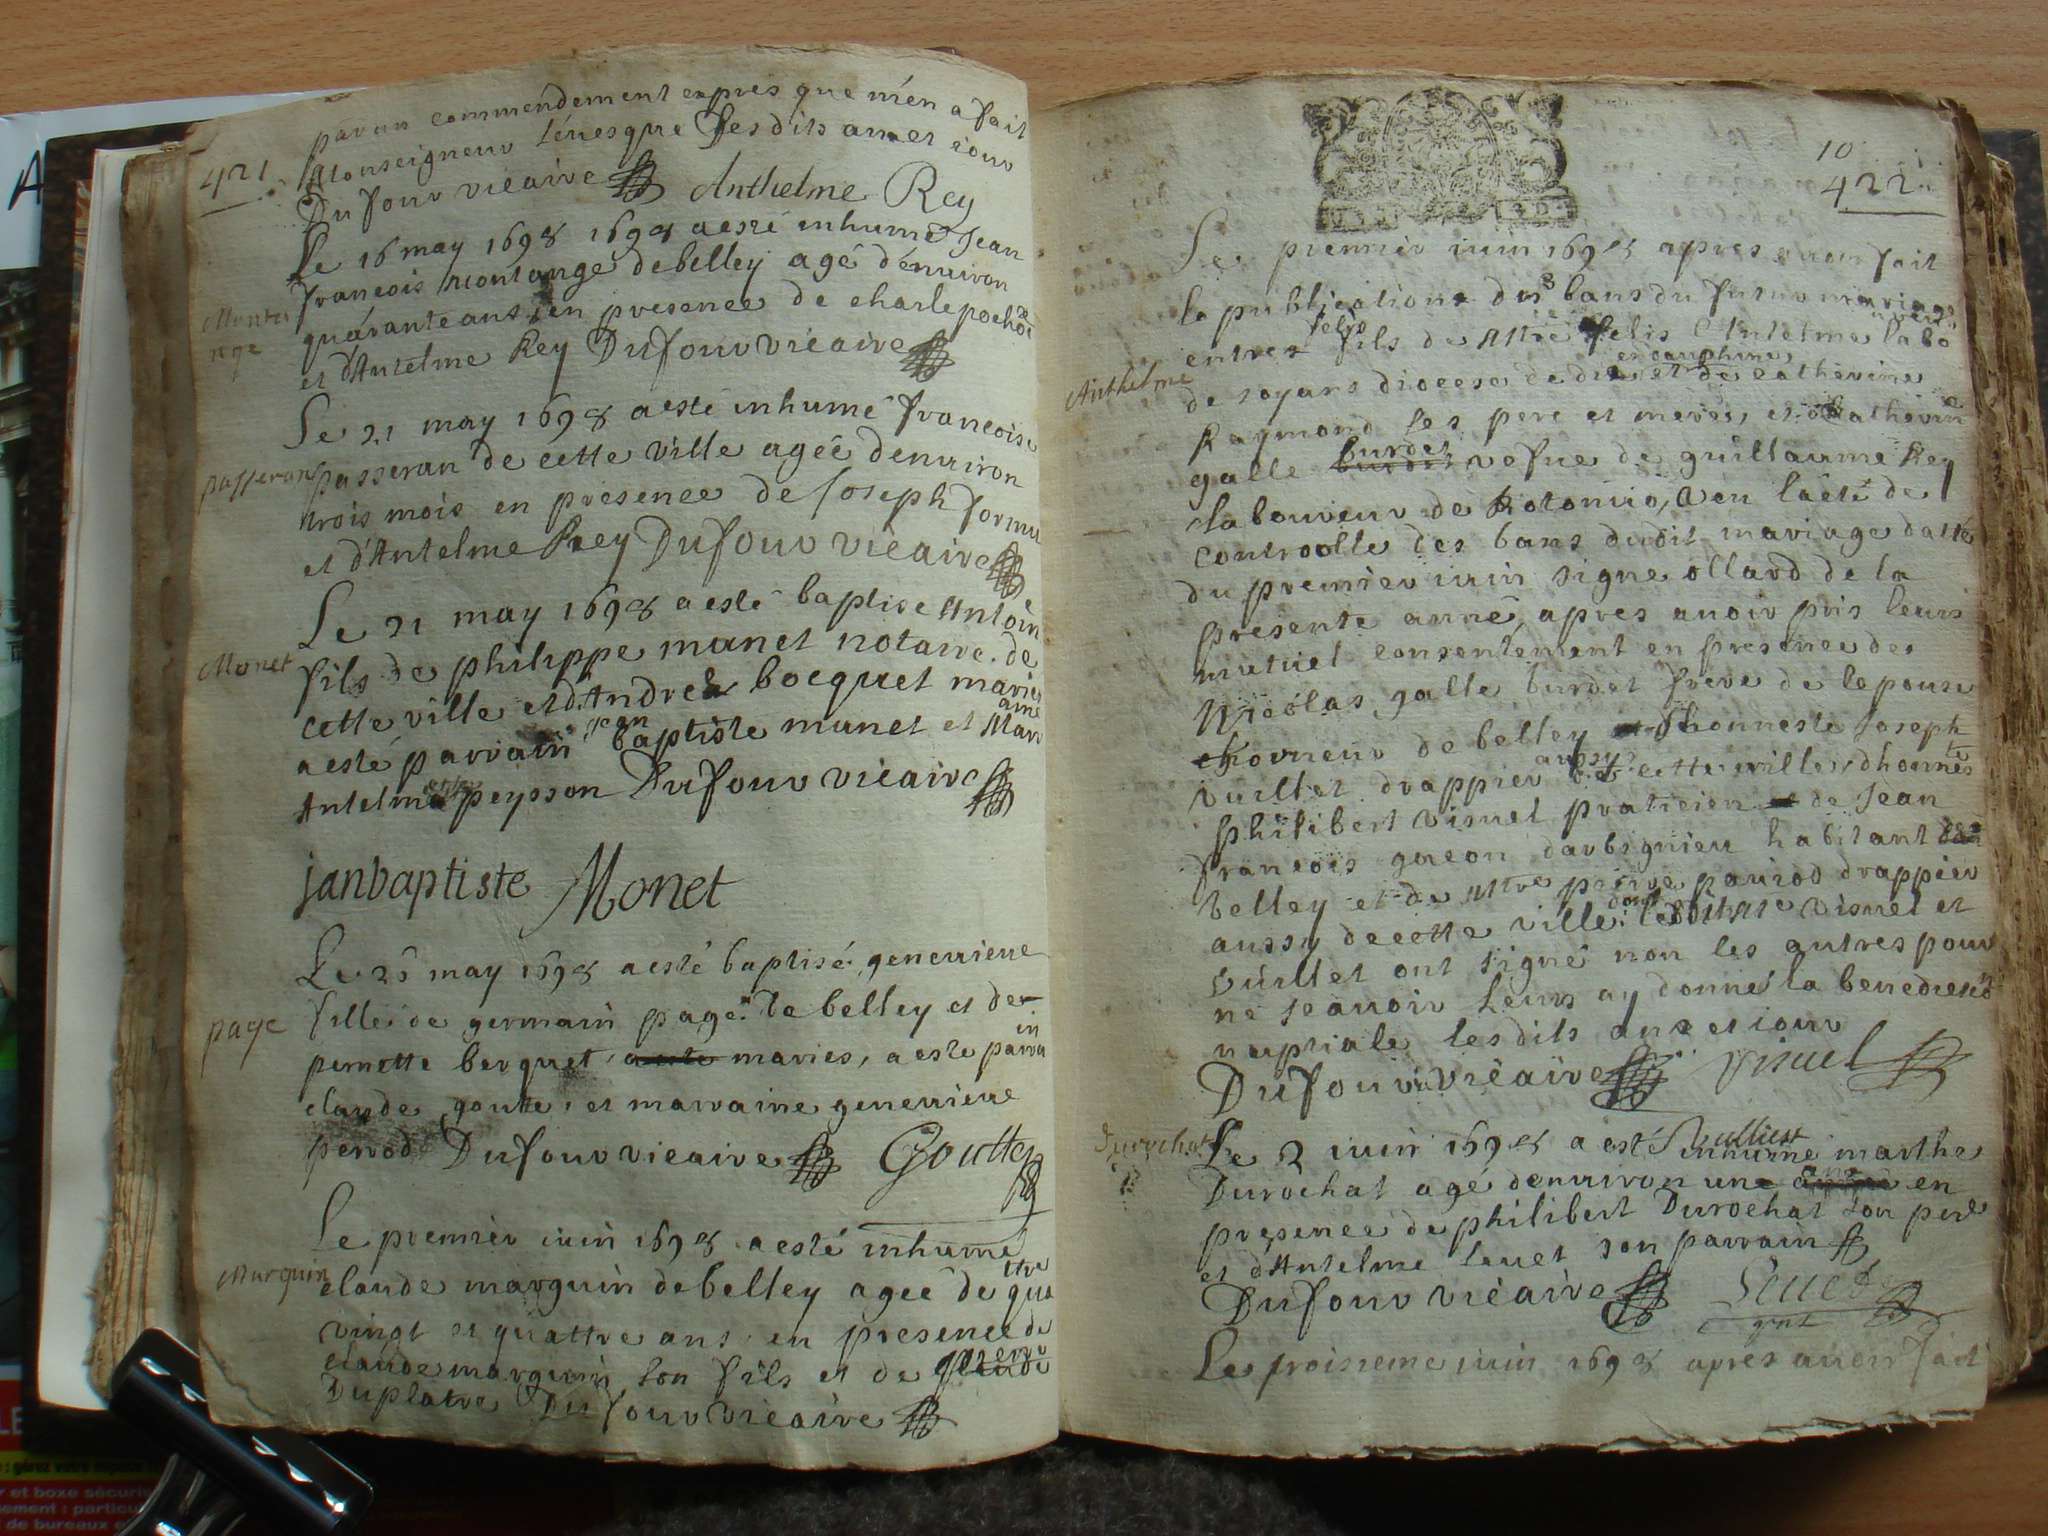 421
par un commendement expres que m'en a fait
Monseigneur l'euesque lesdits an et iour
Dufour vicaire Anthelme Rey
Le 16 may 1698 1698 a esté inhumé Jean
Monta
nge
francois montange de belley agé d'enuiron
quarante ans en presence de charle pochet
et d'Antelme Rey Dufour vicaire
Le 21 may 1698 a esté inhumé francoise
passeran
passeran de cette ville agéé denuiron
trois mois en presence de Joseph
et d'Antelme Rey Dufour vicaire
Le 21 may 1698 a esté baptisé Antoin
Monet
fils de philippe munet notaire de
cette ville et d'Andrea bocquet maries
a esté parrain jean baptiste munet et Marr
aine
Antelma peysson Dufour vicaire
janbaptiste Monet
Le may 1698 a esté baptisé geneuieue
page
fille de germain page de belley et de
pernette berquet maries, a este parra
in
claude goutte et marraine geneuieue
perrod Dufour vicaire Goutte
Le premier iuin 1698 a esté inhumé
Marquin
claude marguin de belley agéé de qua
ttre
vingt et quattre ans en presence de
claude marguin son fils et de
Duplatre Dufour vicaire
10
422
Le premier iuin 1698 apres auoir fait
la publication des 3 bans du futur mariage
entre felis fils de Mtre felis Antelme
Anthelme
de soyans diocese de die en dauphine et de catherine
Raymond ses pere et meres, et catherine
galle burdet vefue de guillaume Rey
laboureur de Rotonio, veu
controolle des bans dudit mariage datte
du premier iuin signe ollard de la
presente anné, apres auoir pris leurs
mutuel consentement en presence de
Nicolas galle burdet frere de lepouse
de belley d'honneste Joseph
vuillet drappier aussy de cette ville, dhonnes
te
philibert visuel praticien de Jean
francois gueon darbignieu habitant
belley et de Mtre pierre pauiod drappier
aussy de cette ville dont visuel et
vuillet ont signé non les autres pour
ne scauoir leurs ay donné la benediction
nuptiale lesdits an et iour
Dufour vicaire visuel
Durochat
Le 2 iuin 1698 a esté inhumé marthe
Durochat agé denuiron un an en
presence de philibert Durochat son pere
et d'Antelme seuet son parrain
Dufour vicaire
Le troisieme iuin 1698 apres auoir fait